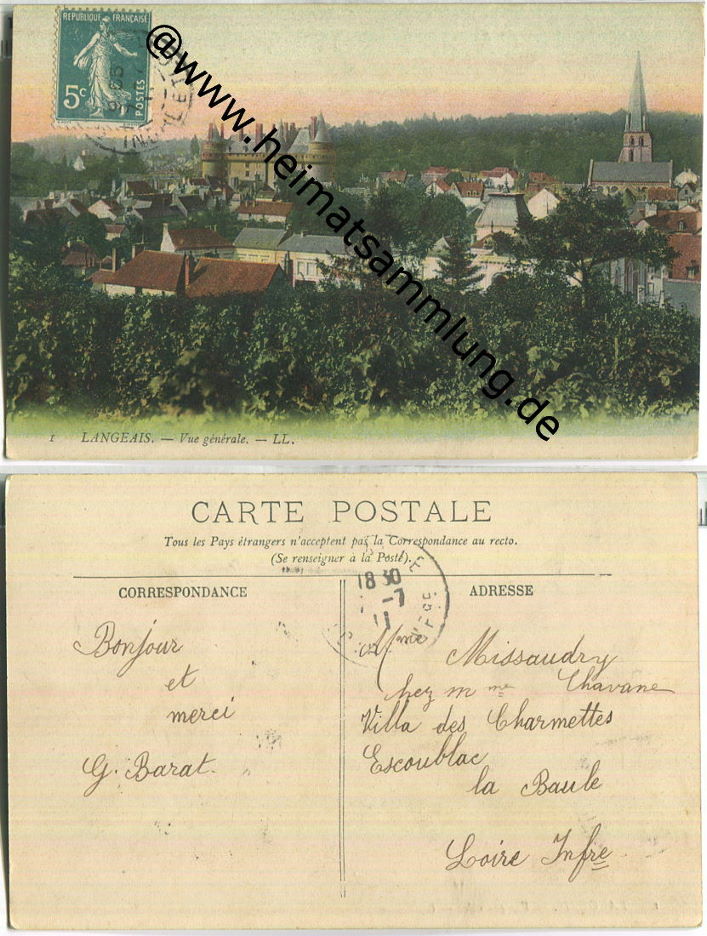 REPUBLIQUE FRANÇAISE
5c
POSTES
@www.heimatsammlung.de
1 LANGEAIS. — Vue générale. — LL.
CARTE POSTALE
Tous les Pays étrangers n'acceptent pas la Correspondance au recto.
(Se renseigner à la Poste).
18 30
-7
11
CORRESPONDANCE
ADRESSE
Bonjour
et
merci
G. Barat.
Mme Missaudry
chez mme Chavane
Villa des Charmettes
Escoublac
la Baule
Loire Infre